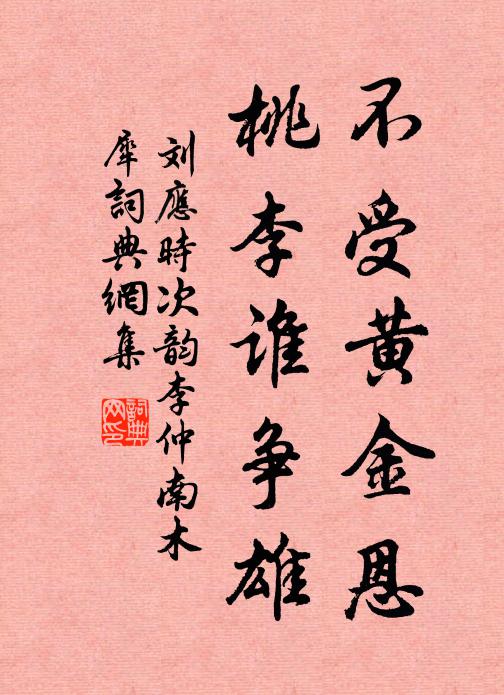 不受黄金恩
桃李谁争雄
刘應時次韵李仲南木
犀詞典網集
詞典网印